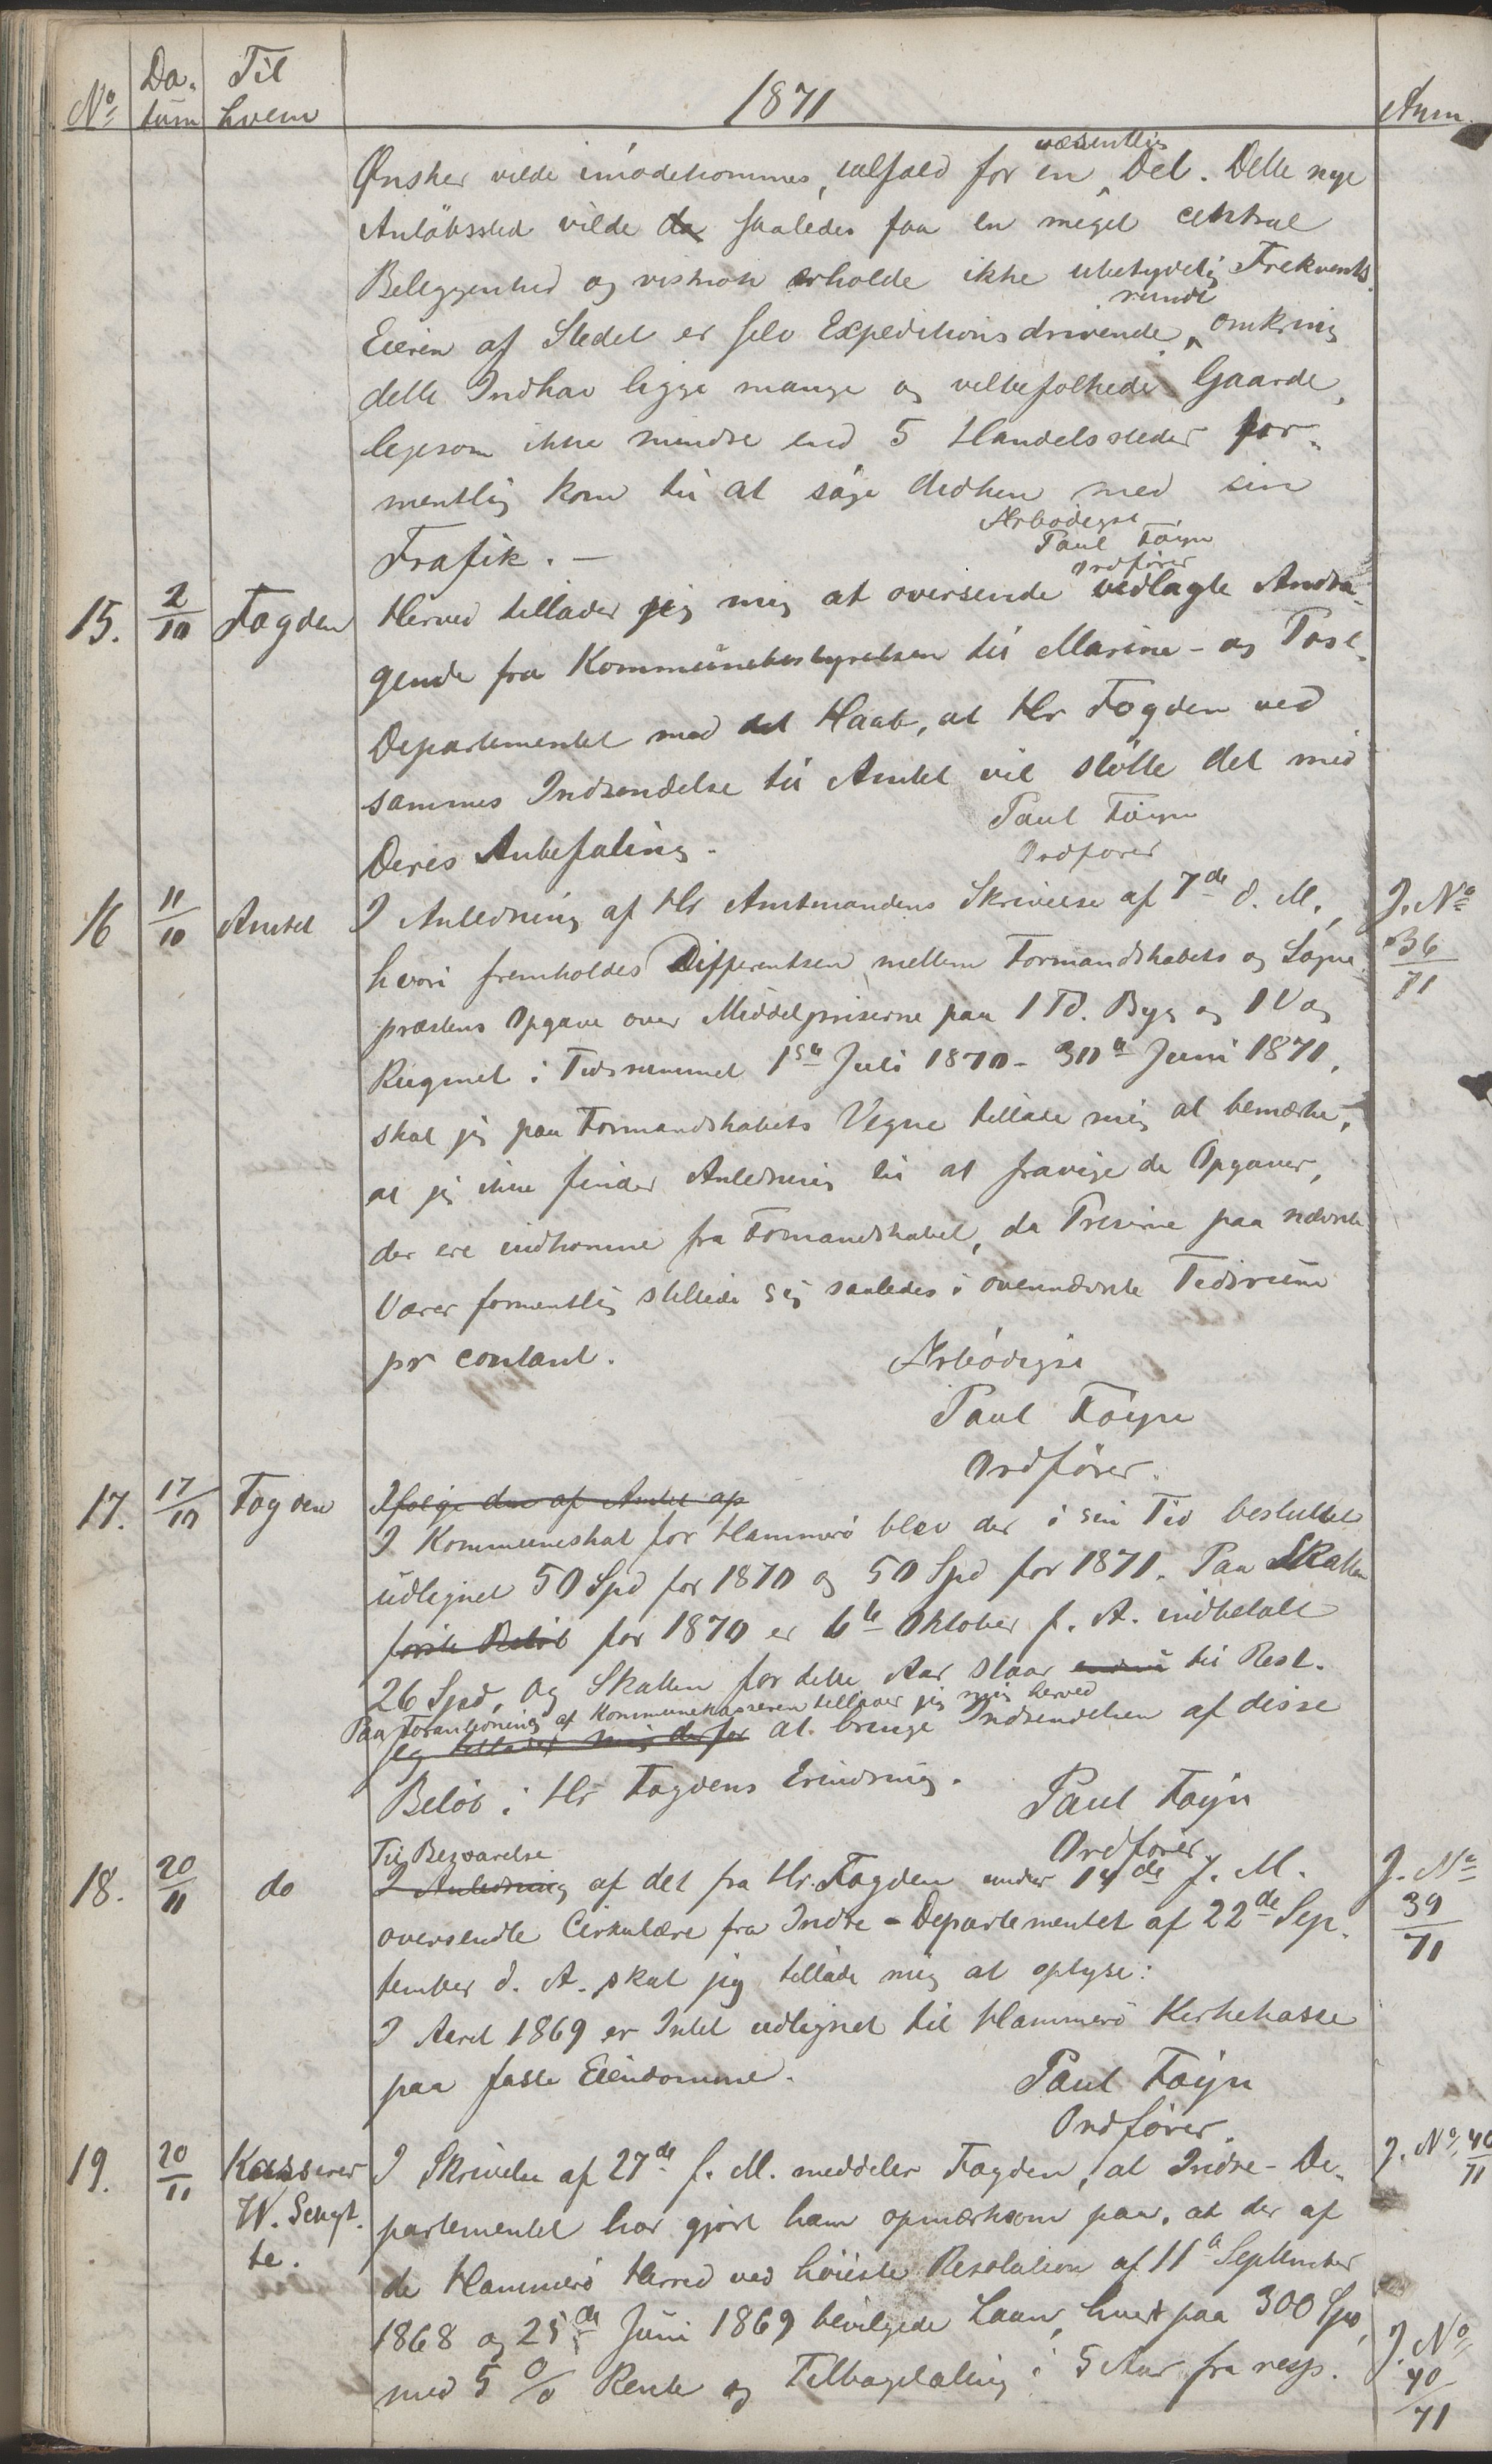 No Da- Til
tum hvem 1871 Anm.
væsentlig
Ønsker vilde imødekommes, ialfald for en Del. Dette nye
Anløbssted vilde da saaledes faa en meget central
Beliggenhed og vistnok erholde ikke ubetydelig Frekvents.
rundt
Eieren af Stedet er selv Expeditionsdrivende, omkring
dette Indhav ligge mange og velbefolkede Gaarde,
ligesom ikke mindre end 5 Handelssteder for-
mentlig kom til at søge didhen med sin
Trafik. —
Ærbødigst
Paul Føyn
Ordfører
15. 2/10 Fogden Herved tillader jeg mig at oversende vedlagte Andra-
gende fra Kommunebestyrelsen til Marine- og Post-
Departementet med det Haab, at Hr Fogden ved
sammes Indsendelse til Amtet vil støtte det med
Deres Anbefaling.
Paul Føyn
Ordfører
16 11/10 Amtet I Anledning af Hr Amtmandens Skrivelse af 7de d. M., J. No
hvori fremholdes Differentsen mellem Formandskabets og Sogne- 36/71
præstens Opgave over Middelpriserne paa 1 Td. Byg og 1 Vog
Rugmel i Tidsrummet 1ste Juli 1870 - 30te Juni 1871,
skal jeg paa Formandskabets Vegne tillade mig at bemærke,
at jeg ikke finder Anledning til at fravige de Opgaver,
der ere indkomne fra Formandskabet, da Priserne paa nævnte
Varer formentlig stillede sig saaledes i ovennævnte Tidsrum
pr contant.
Ærbødigst
Paul Føyn
Ordfører.
17. 17/10 Fogden Ifølge den af Amtet ap
I Kommuneskat for Hammerø blev der i sin Tid besluttet
udlignet 50 Spd for 1870 og 50 Spd for 1871. Paa Skatten
første Beløb for 1870 er 6te Oktober f. A. indbetalt
26 Spd, og Skatten for dette Aar staar endnu til Rest.
Paa Foranledning af Kommunekasseren tillader jeg mig herved
Jeg tillader mig derfor at bringe Indsendelsen af disse
Beløb i Hr Fogdens Erindring.
Paul Føyn
Ordfører.
18. 20/11 do Til Besvarelse
I Anledning af det fra Hr. Fogden under 14de f. M. J. No
oversendte Cirkulære fra Indre-Departementet af 22de Sep- 39/71
tember d. A. skal jeg tillade mig at oplyse:
I Aaret 1869 er Intet udlignet til Hammerø Kirkekasse
paa faste Eiendomme.
Paul Føyn
Ordfører.
19. 20/11 Kasserer I Skrivelse af 27de f. M. meddeler Fogden, at Indre-De- J. No 40/71
W. Schøt- partementet har gjort ham opmærksom paa, at der af
te. de Hammerø Herred ved høieste Resolution af 11te September
1868 og 25de Juni 1869 bevilgede Laan, hvert paa 300 Spd,
med 5 % Rente og Tilbagebetaling i 5 Aar fra resp. J. No 40/71